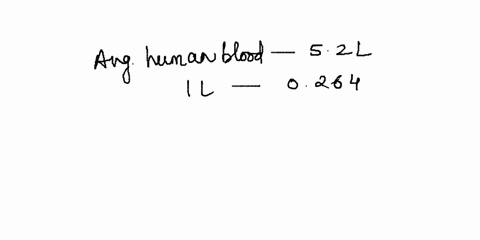 Avg. human blood — 5.2L
1L — 0.264